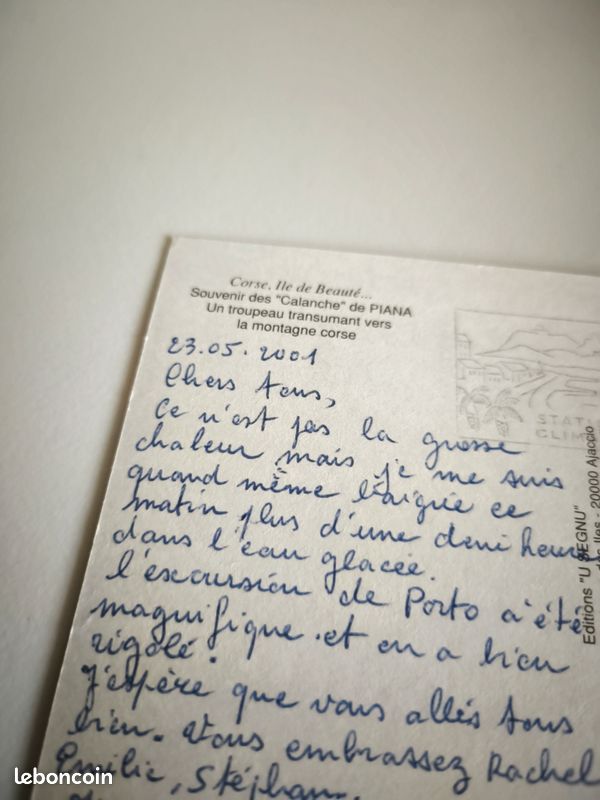 Corse, Ile de Beauté...
Souvenir des "Calanche" de PIANA
Un troupeau transumant vers
la montagne corse
23.05.2001
Chers tous,
Ce n'est pas la grosse
chaleur mais je me suis
quand même baignée ce
matin plus d'une demi heure
dans l'eau glacée.
l'excursion de Porto a été
magnifique. et on a bien
rigolé.
J'espère que vous allés tous
bien. Vous embrassez Rachel
Emilie, Stéphan
STATI
CLIM
Editions "U SEGNU"
des Iles - 20000 Ajaccio
leboncoin